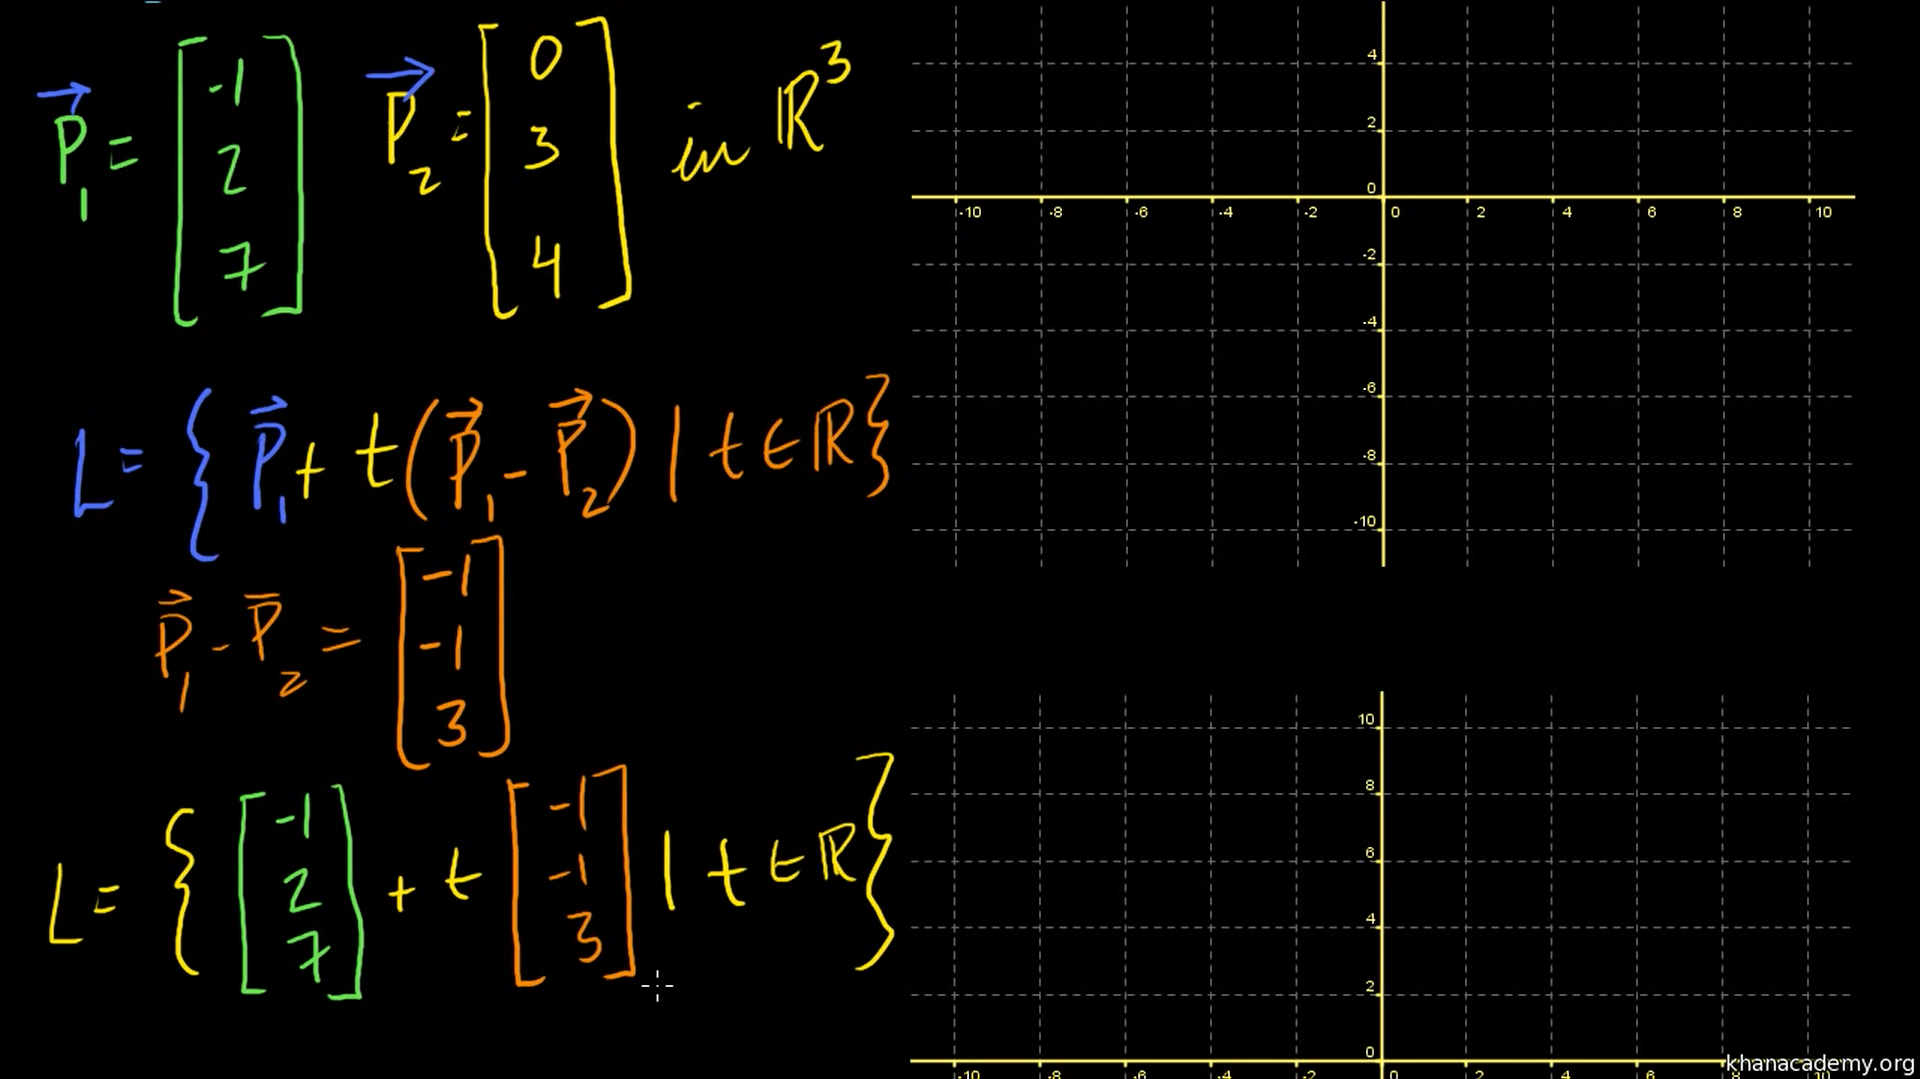 P₁ = [-1 2 7] P₂ = [0 3 4] in ℝ³
L = { P₁ + t(P₁ - P₂) | t ∈ ℝ }
P₁ - P₂ = [-1 -1 3]
L = { [-1 2 7] + t [-1 -1 3] | t ∈ ℝ }
4
2
0
-10 -8 -6 -4 -2 0 2 4 6 8 10
-2
-4
-6
-8
-10
10
8
6
4
2
0
-10 -8 -6 -4 -2 0 2 4 6 8 10
khanacademy.org